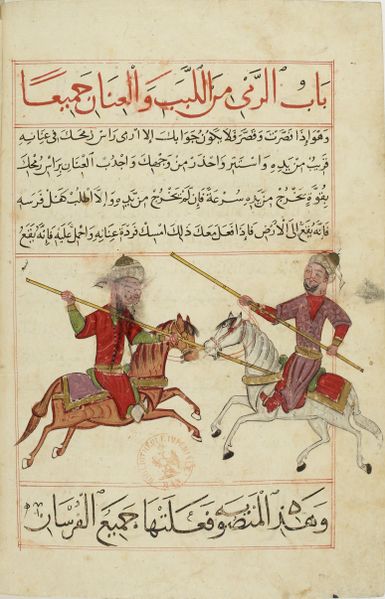 باب الرمي من اللبب والعنان جميعًا
وهو اذا قصرت وقصر فلا يكون جوابك الا راس رمحك في عنانه
قريب من يديه واستتر واحذر من وجهك واجذب العنان براس رمحك
بقوة يخرج من يديه سرعة فان لم يخرج من يديه والا اطلب كفل فرسه
فانه يقع الى الارض فاذا فعل معك ذلك امسك فردة عنانه واحمل عليه فانه يقع
وهذه المنصوبه فعلتها جميع الفرسان
BIBLIOTHEQUE IMPERIALE